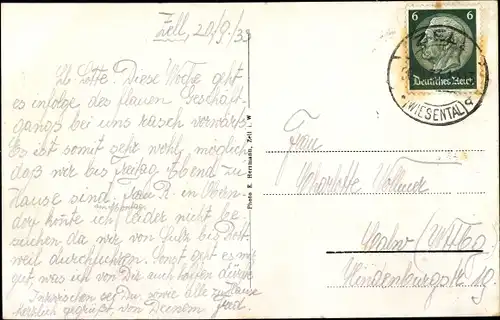 Zell, 20/9.33
Lb. Lotte! Diese Woche geht
es infolge des flauen Geschäft-
gangs bei uns rasch vorwärts.
Es ist somit sehr wohl möglich
daß wir bis Freitag Abend zu
Hause sind. R. in Obern-
dorf konnte ich leider nicht be-
suchen da wir von Sulz bis Rott-
weil durchfuhren. Sonst geht es mir
gut was ich von Dir auch hoffen dürfte.
Inzwischen sei Du, sowie alle zu Hause
herzlich gegrüßt von Deinem
Photo E. Herrmann, Zell i. W.
6 6
Deutsches Reich
ZELL
(WIESENTAL)
Frau
Charlotte Vollmer
Calw (Wttbg.)
Hindenburgstr. 19.